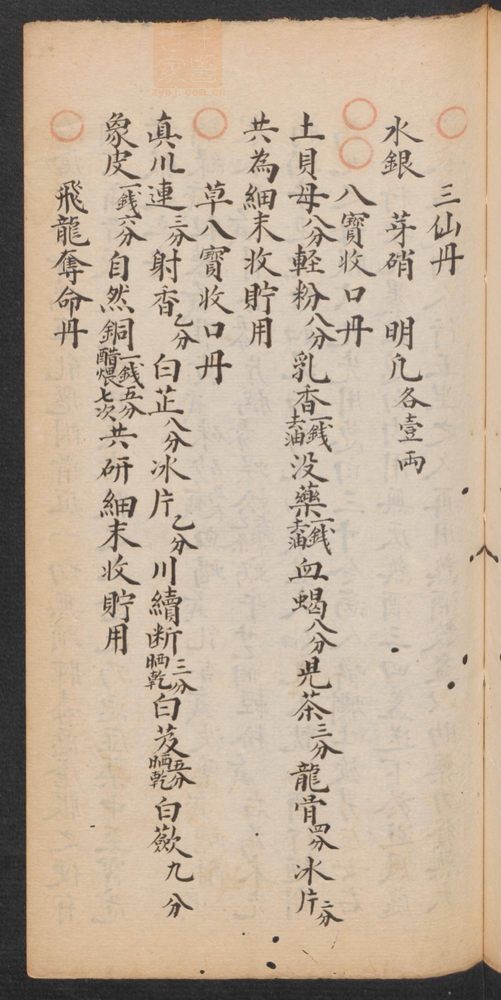 三仙丹
水銀 芽硝 明凡各壹両
八寳收口丹
土貝母八分軽粉八分乳香一錢去油没藥一錢去油血蝎八分児茶三分龍骨四分冰片二分
共為細末收貯用
草八寳收口丹
真川連三分射香乙分白芷八分冰片乙分川續断三分晒乾白芨五分晒乾白蘞九分
象皮一錢六分自然同一錢五分醋煨七次共研細末收貯用
飛龍奪命丹